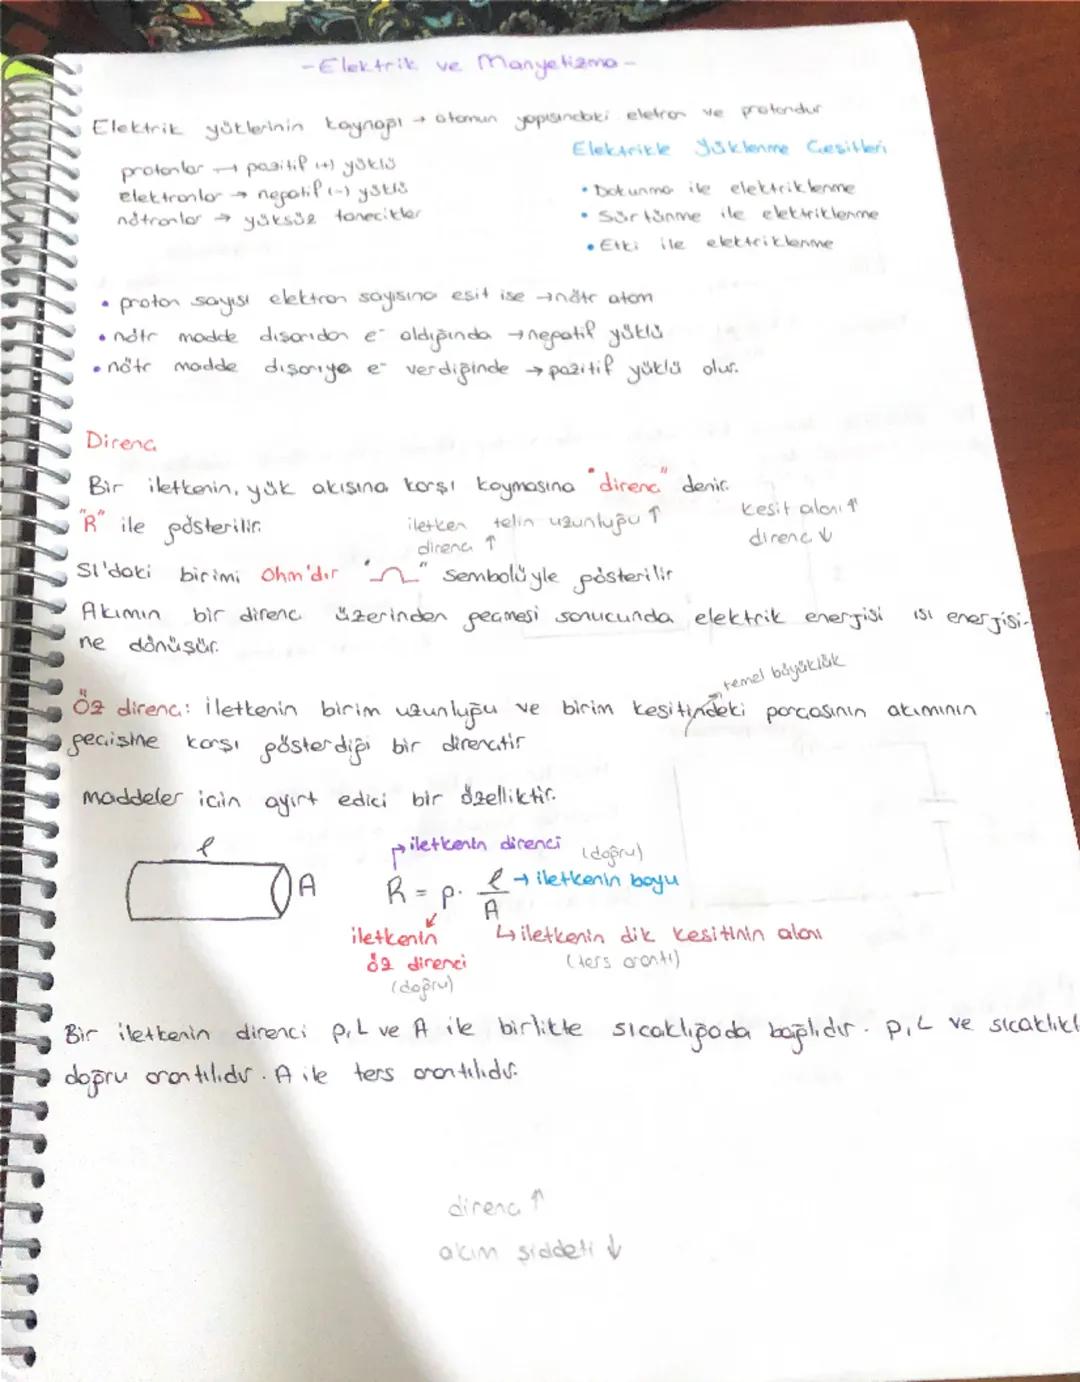 - Elektrik ve Manyetizma -
Elektrik yüklerinin kaynağı → atomun yapısındaki eletron ve protondur
protonlar → pozitif (+) yüklü
elektronlar → negatif (-) yüklü
nötronlar → yüksüz tanecikler
Elektrikle Yüklenme Çeşitleri
• Dokunma ile elektriklenme
• Sürtünme ile elektriklenme
• Etki ile elektriklenme
• proton sayısı elektron sayısına eşit ise → nötr atom
• nötr madde dışarıdan e⁻ aldığında → negatif yüklü
• nötr madde dışarıya e⁻ verdiğinde → pozitif yüklü olur.
Direnç
Bir iletkenin, yük akışına karşı koymasına "direnç" denir.
"R" ile gösterilir.
iletken telin uzunluğu ↑
direnç ↑
kesit alanı ↑
direnç ↓
SI'daki birimi Ohm'dır "Ω" sembolüyle gösterilir
Akımın bir direnç üzerinden geçmesi sonucunda elektrik enerjisi ısı enerjisi-
ne dönüşür.
temel büyüklük
Öz direnç: İletkenin birim uzunluğu ve birim kesitindeki parçasının akımının
geçişine karşı gösterdiği bir dirençtir
maddeler için ayırt edici bir özelliktir.
l
A
iletkenin direnci
(doğru)
R = ρ . l/A
→ iletkenin boyu
iletkenin
öz direnci
(doğru)
↳ iletkenin dik kesitinin alanı
(ters orantı)
Bir iletkenin direnci ρ, L ve A ile birlikte sıcaklığada bağlıdır. ρ, L ve sıcaklıkl
doğru orantılıdır. A ile ters orantılıdır.
direnç ↑
akım şiddeti ↓